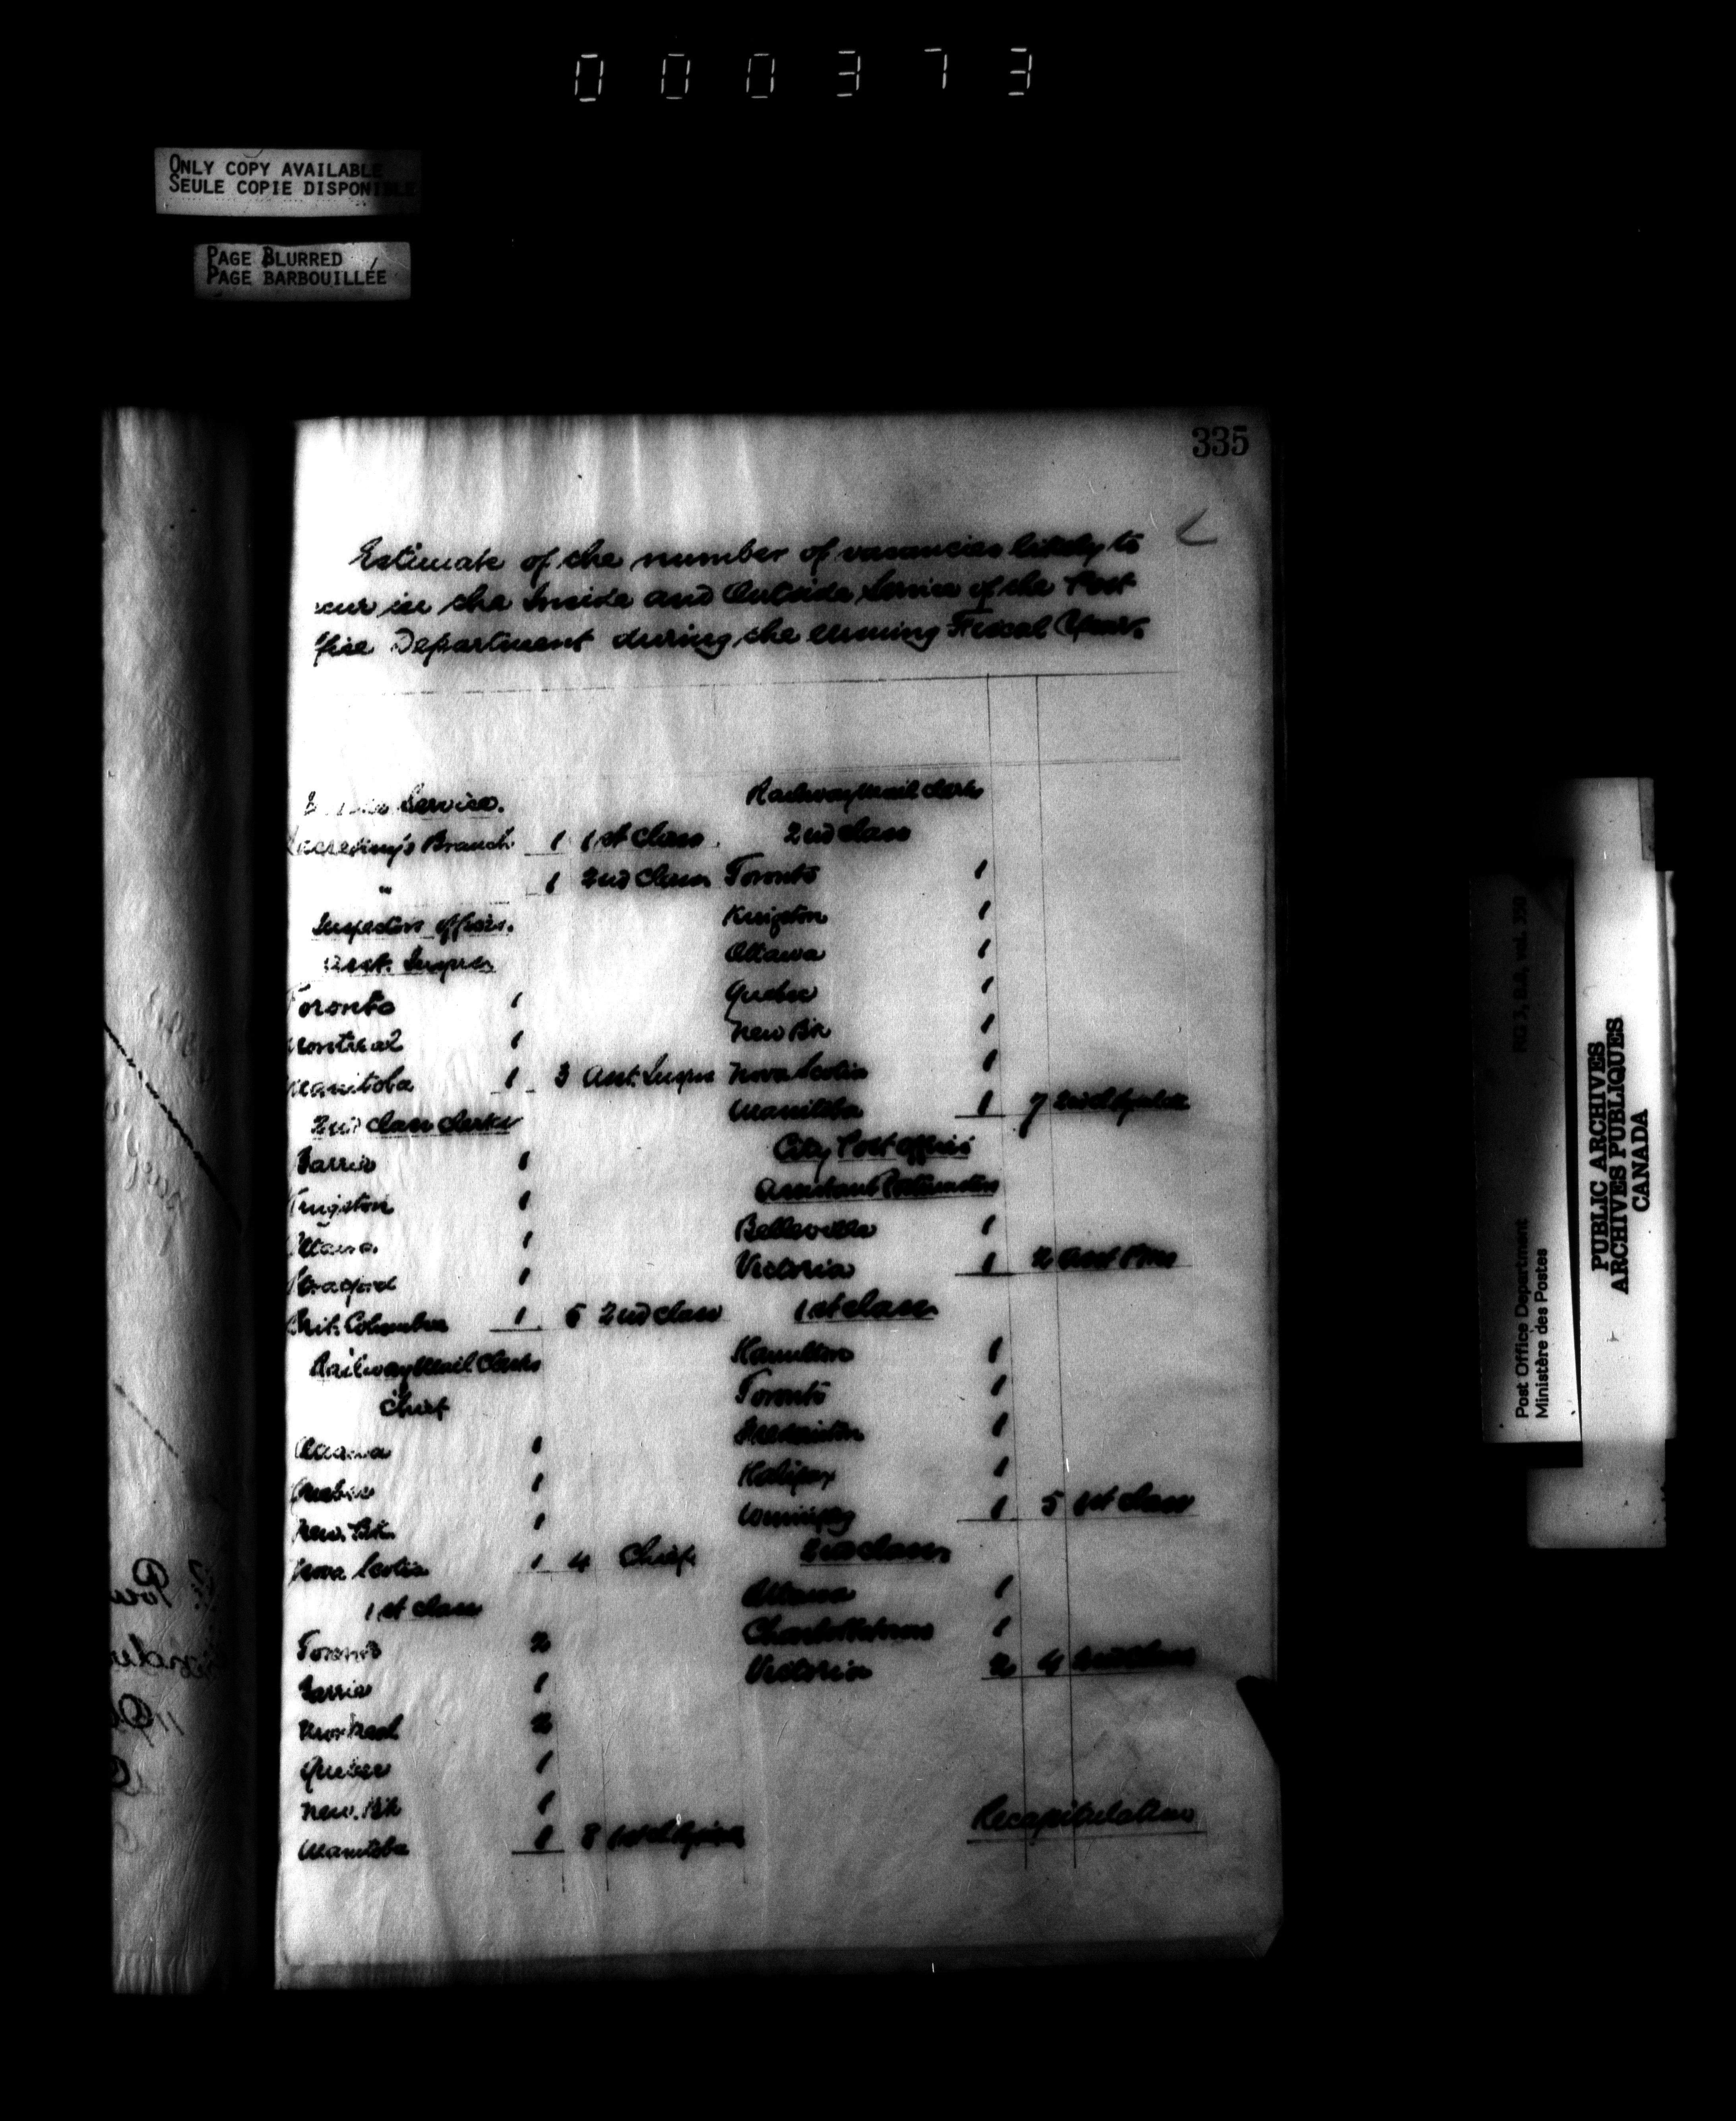 000373
ONLY COPY AVAILABLE
SEULE COPIE DISPONIBLE
PAGE BLURRED
PAGE BARBOUILLÉE
335
Estimate of the number of vacancies likely to
occur in the Inside and Outside Service of the Post
Office Department during the ensuing Fiscal Year.
Service.
Secretary's Branch 1 1st Class
" 1 2nd Class
Inspectors Offices.
Asst. Insprs
Toronto 1
Montreal 1
Manitoba 1 3 Asst. Insprs
2nd Class Clerks
Barrie 1
Kingston 1
Ottawa 1
Stratford 1
Brit. Columbia 1 5 2nd Class
Railway Mail Clerks
Chief
Ottawa 1
Quebec 1
New. Bk. 1
Nova Scotia 1 4 Chief
1st Class
Toronto 2
Barrie 1
Montreal 2
Quebec 1
New. Bk 1
Manitoba 1 8 1st Cl
Railway Mail Clerks
2nd Class
Toronto 1
Kingston 1
Ottawa 1
Quebec 1
New Bk 1
Nova Scotia 1
Manitoba 1 7 2nd Cl
City Post Offices
Assistant Postmasters
Belleville 1
Victoria 1 2 Asst P.Mrs
1st Class
Hamilton 1
Toronto 1
Fredericton 1
Halifax 1
Winnipeg 1 5 1st Class
2nd Class
Ottawa 1
Charlottetown 1
Victoria 2 4 2nd Class
Recapitulation
RG 3, D.9, vol. 350
Post Office Department
Ministère des Postes
PUBLIC ARCHIVES
ARCHIVES PUBLIQUES
CANADA